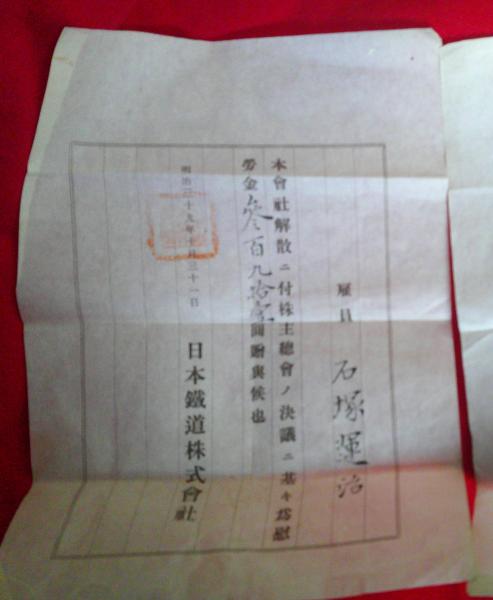 雇員 石塚運治
本會社解散ニ付株主總會ノ決議ニ基キ爲慰
勞金參百九拾壹圓贈與候也
明治三十九年十月三十一日
日本鐵道株式會社